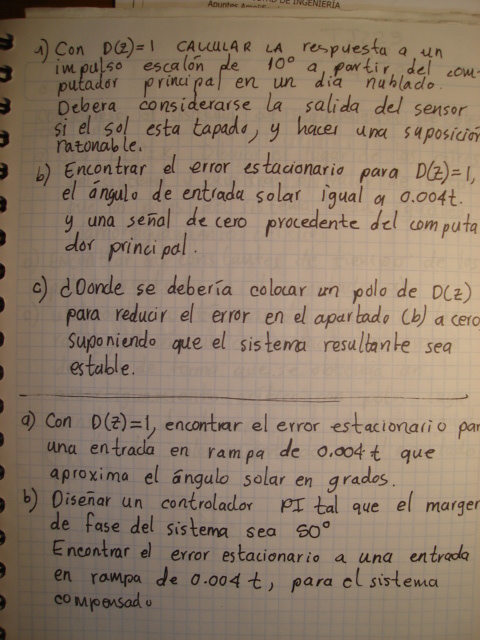 DE INGENIERÍA
Apuntes
1) Con D(z)=1 CALCULAR LA respuesta a un
impulso escalón de 10° a partir del com-
putador principal en un dia nublado.
Debera considerarse la salida del sensor
si el sol esta tapado, y hacer una suposición
razonable.
b) Encontrar el error estacionario para D(z)=1,
el ángulo de entrada solar igual a 0.004t.
y una señal de cero procedente del computa
dor principal.
c) ¿Donde se debería colocar un polo de D(z)
para reducir el error en el apartado (b) a cero,
suponiendo que el sistema resultante sea
estable.
a) Con D(z)=1, encontrar el error estacionario par
una entrada en rampa de 0.004t que
aproxima el ángulo solar en grados.
b) Diseñar un controlador PI tal que el margen
de fase del sistema sea 50°
Encontrar el error estacionario a una entrada
en rampa de 0.004 t, para el sistema
compensado